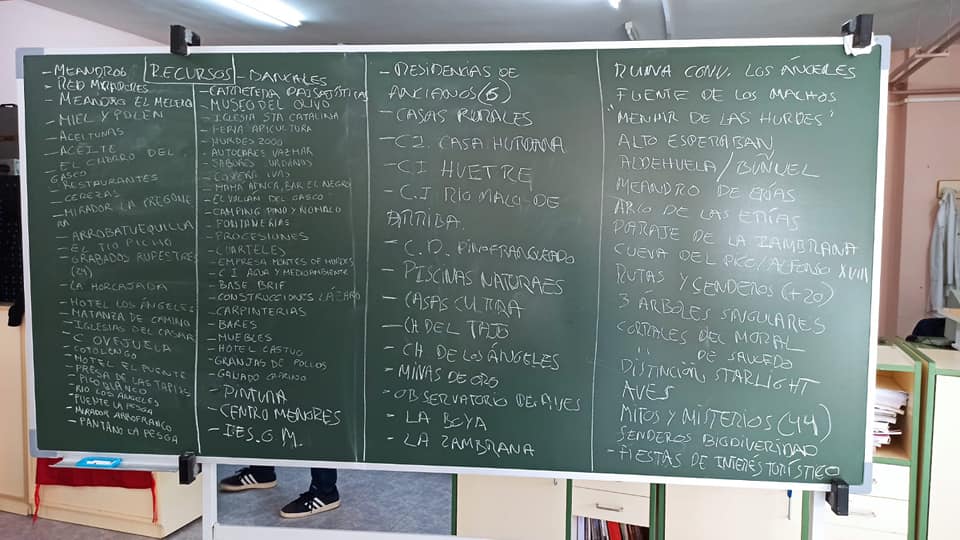 RECURSOS
- MEANDROS
- RED MIRADORES
- MEANDRO EL MELERO
- MIEL Y POLEN
- ACEITUNAS
- ACEITE
- EL CHORRO DEL
GASCO
- RESTAURANTES
- CEREZAS
- MIRADOR LA PREGONE
RA
- ARROBATUEQUILLA
- EL TIO PICHO
- GRABADOS RUPESTRES
(24)
- LA HORCAJADA
- HOTEL LOS ÁNGELES
- MATANZA DE CAMINO
- IGLESIAS DEL CASAR
C OVEJUELA
- COTOLENGO
- HOTEL EL PUENTE
- PRESA DE LAS TAPIAS
- RIO LOS ÁNGELES
- PUENTE LA PESGA
- MIRADOR ARROFRANCO
- PANTANO LA PESGA
- BANCALES
- CARRETERA PAISAJÍSTICAS
- MUSEO DEL OLIVO
- IGLESIA STA CATALINA
- FERIA APICULTURA
- HURDES 2000
- AUTOCARES VAZMAR
- SABORES URDANOS
- MAMA AFRICA, BAR EL NEGRO
- EL VOLCAN DEL GASCO
- CAMPING PINO Y NOMALO
- FONTANERIAS
- PROCESIONES
- CUARTELES
- EMPRESA MONTES DE HURDES
- C I AGUA Y MEDIOAMBIENTE
- BASE BRIF
- CONSTRUCCIONES LÁZARO
- CARPINTERIAS
- BARES
- MUEBLES
- HOTEL CASTUO
- GRANJAS DE POLLOS
- GANADO CAPRINO
- PINTURA
- CENTRO MENORES
- I.E.S. G M.
- RESIDENCIAS DE
ANCIANOS (6)
- CASAS RURALES
- C I. CASA HURDANA
- C I HUETRE
- C.I RIO MALO DE
ARRIBA.
- C.D. PINOFRANQUEADO
- PISCINAS NATURAES
- CASAS CULTURA
- CH DEL TAJO
- CH DE LOS ÁNGELES
- MINAS DE ORO
- OBSERVATORIO DE AVES
- LA BOYA
- LA ZAMBRANA
RUINA CONV. LOS ÁNGELES
FUENTE DE LOS MACHOS
"MENHIR DE LAS HURDES"
ALTO ESPERABAN
ALDEHUELA / BUÑUEL
MEANDRO DE ERÍAS
ARCO DE LAS ERÍAS
PARAJE DE LA ZAMBRANA
CUEVA DEL RICO/ALFONSO XVIII
RUTAS Y SENDEROS (+20)
3 ARBOLES SINGULARES
CORRALES DEL MORAL
" " DE SAUCEDO
DISTINCIÓN STARLIGHT
AVES
MITOS Y MISTERIOS (44)
SENDEROS BIODIVERIDAD
- FIESTAS DE INTERES TURÍSTICO